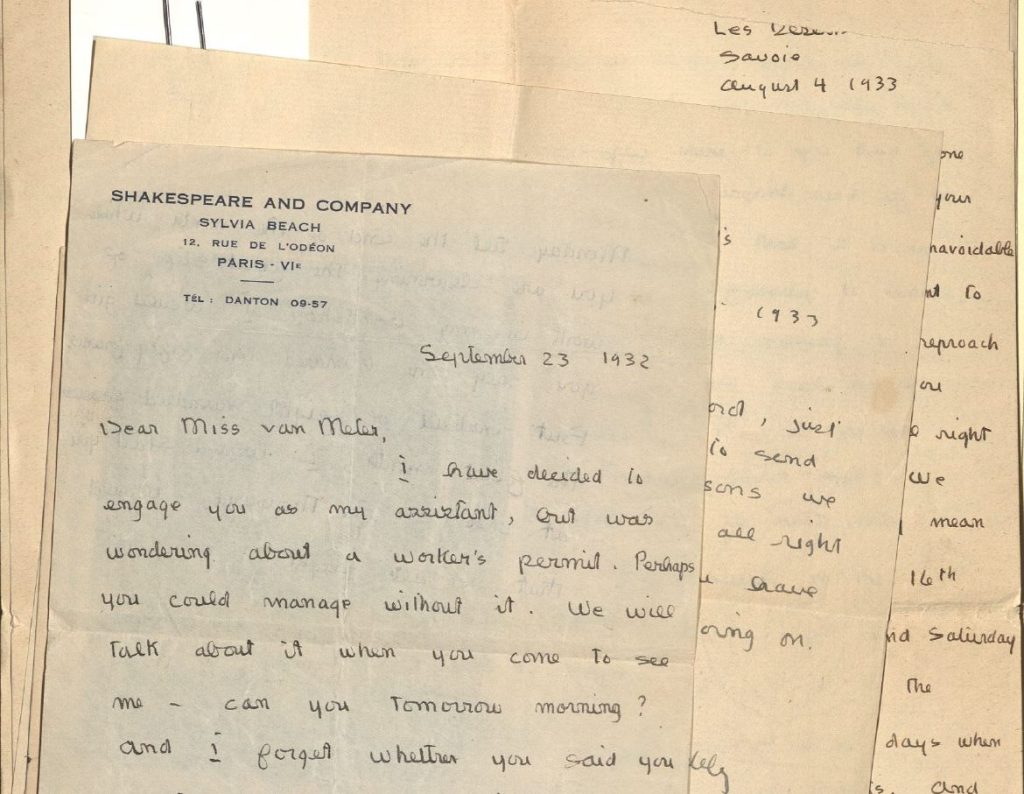 SHAKESPEARE AND COMPANY
SYLVIA BEACH
12, RUE DE L'ODÉON
PARIS - VIE
TÉL : DANTON 09-57
September 23 1932
Dear Miss van Meter,
I have decided to
engage you as my assistant, but was
wondering about a worker's permit. Perhaps
you could manage without it. We will
talk about it when you come to see
me – can you tomorrow morning?
and I forget whether you said you
1933
just
to send
we
all right
have
on.
Les
Savoie
August 4 1933
one
your
to
reproach
right
we
mean
16th
Saturday
The
days when
and